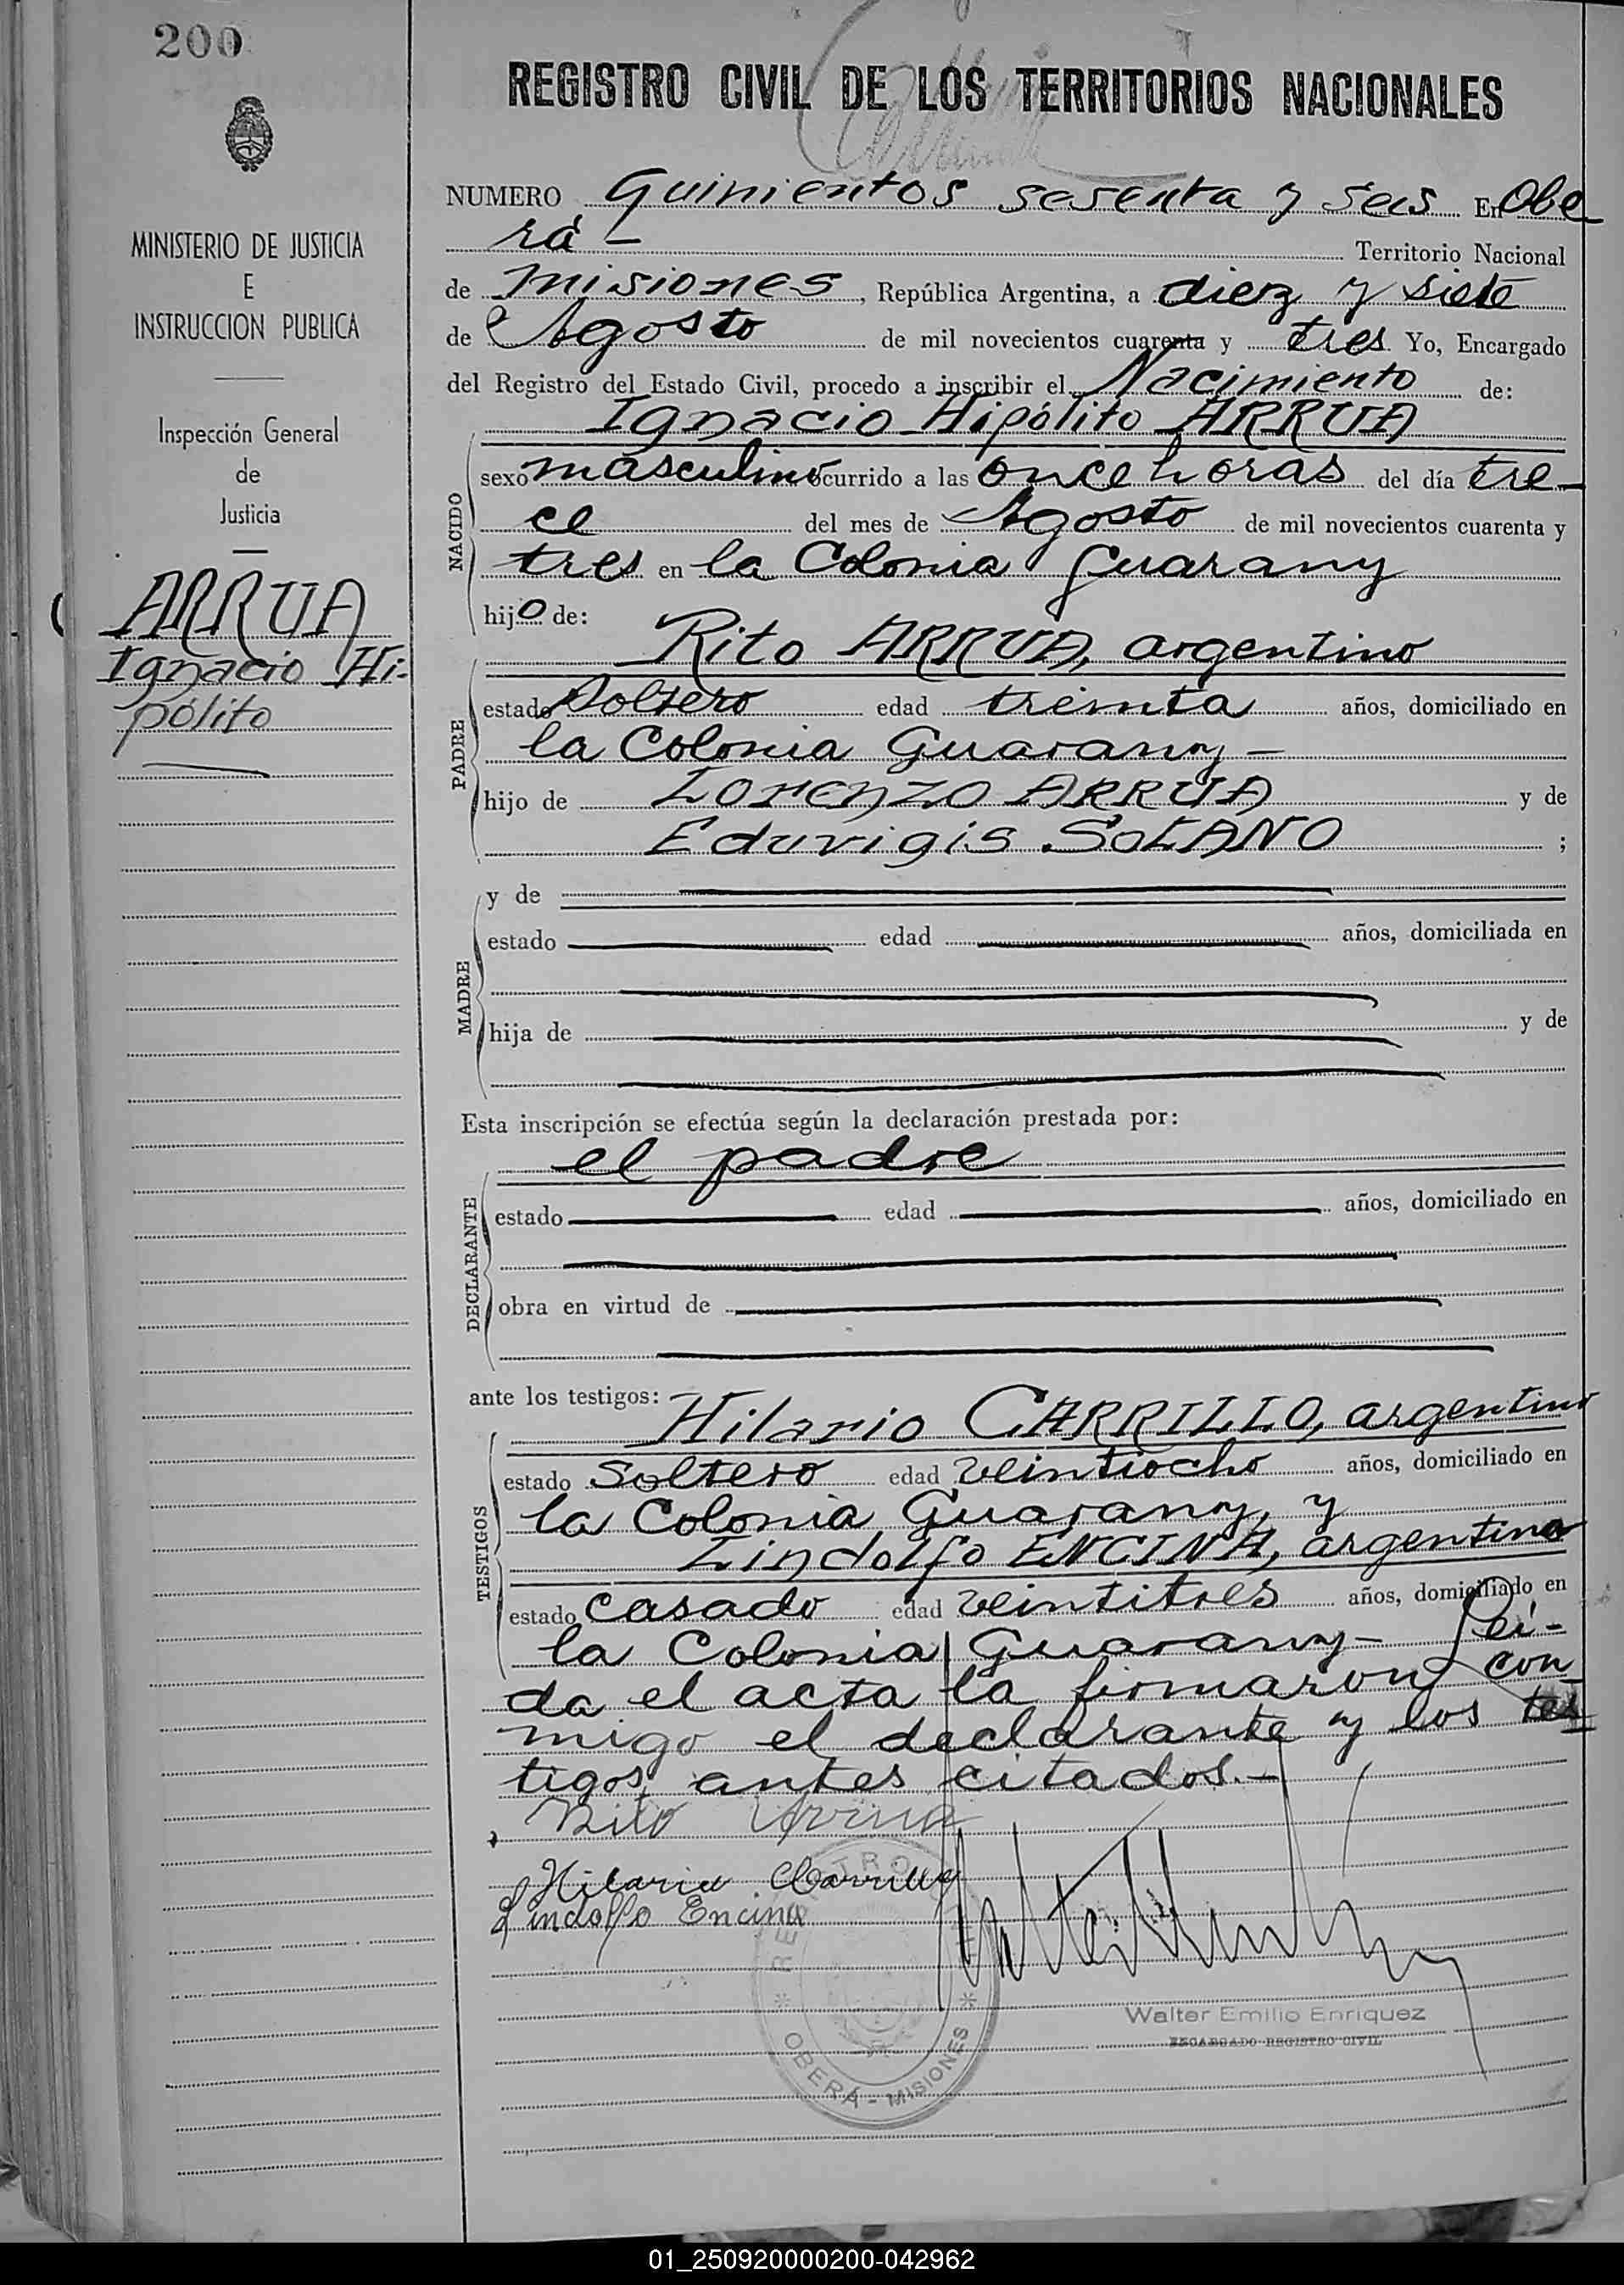 200
REGISTRO CIVIL DE LOS TERRITORIOS NACIONALES
MINISTERIO DE JUSTICIA
E
INSTRUCCION PUBLICA
Inspección General
de
Justicia
ARRUA
Ignacio Hi-
pólito
NUMERO Quinientos sesenta y seis En Obe
rá - Territorio Nacional
de Misiones, República Argentina, a diez y siete
de Agosto de mil novecientos cuarenta y tres Yo, Encargado
del Registro del Estado Civil, procedo a inscribir el Nacimiento de:
Ignacio Hipólito ARRUA
NACIDO
sexo masculino ocurrido a las once horas del día tre-
ce del mes de Agosto de mil novecientos cuarenta y
tres en la Colonia Guarany
hijo de:
Rito ARRUA, argentino
PADRE
estado Soltero edad treinta años, domiciliado en
la Colonia Guarany -
hijo de Lorenzo ARRUA y de
Eduvigis SOLANO ;
MADRE
y de
estado edad años, domiciliada en
hija de y de
Esta inscripción se efectúa según la declaración prestada por:
el padre
DECLARANTE
estado edad años, domiciliado en
obra en virtud de
ante los testigos:
Hilario CARRILLO, argentino
TESTIGOS
estado Soltero edad veintiocho años, domiciliado en
la Colonia Guarany, y
Lindolfo ENCINA, argentino
estado casado edad veintitres años, domiciliado en
la Colonia Guarany - Leí-
da el acta la firmaron con
migo el declarante y los tes
tigos antes citados.-
Rito Arrua
Hilario Carrillo
Lindolfo Encina
REGISTRO CIVIL
OBERÁ - MISIONES
Walter Emilio Enriquez
ENCARGADO REGISTRO CIVIL
01_250920000200-042962